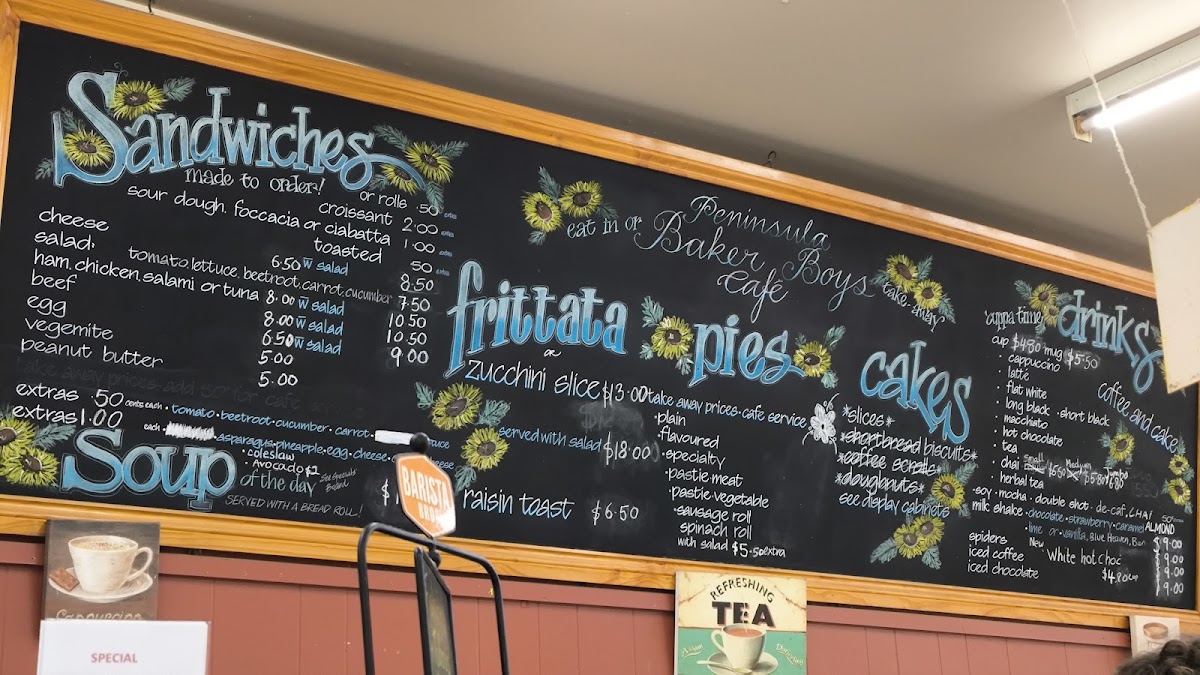 Sandwiches
made to order!
or rolls .50 extra
croissant 2.00 extra
sour dough, foccacia or ciabatta 1.00 extra
toasted 50 extra
cheese 6.50 w salad 8.50
salad: tomato, lettuce, beetroot, carrot, cucumber 7.50
ham, chicken, salami or tuna 8.00 w salad 10.50
beef 8.00 w salad 10.50
egg 6.50 w salad 9.00
vegemite 5.00
peanut butter 5.00
take away prices add for cafe
extras .50 cents each • tomato • beetroot • cucumber • carrot
extras 1.00 each • asparagus • pineapple • egg • cheese
• coleslaw
• Avocado $2
Soup
of the day
See Specials Board
SERVED WITH A BREAD ROLL!
eat in or
Peninsula
Baker Boys
Café
take away
frittata
or
zucchini slice $13.00
served with salad $18.00
raisin toast $6.50
pies
take away prices • cafe service
•plain
•flavoured
•specialty
•pastie meat
•pastie vegetable
•sausage roll
spinach roll
with salad $5.50 extra
cakes
*slices*
*shortbread biscuits*
*coffee scrolls*
*doughnuts*
see display cabinets
drinks
cuppa time
cup $4.50 mug $5.50
• cappuccino
• latte
• flat white
• long black • short black
• macchiato
• hot chocolate
• tea
• chai
small
Medium
Jumbo
• herbal tea
Coffee and cake
•soy • mocha • double shot • de-caf, CHAI 50
ALMOND
milk shake • chocolate • strawberry • caramel
• lime or • vanilla, Blue Heaven, Ban $9.00
spiders $9.00
New White hot choc $4.80 cup
iced coffee 9.00
iced chocolate 9.00
BARISTA
BROS
Cappuccino
SPECIAL
REFRESHING
TEA
Delicious